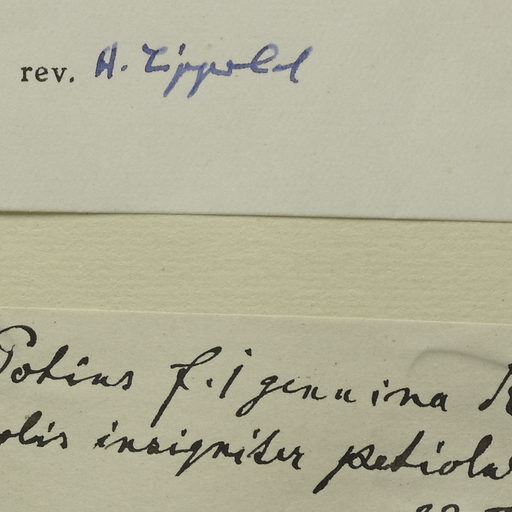 rev. H. Lippold
Potius f. genuina
olis insigniter petiola